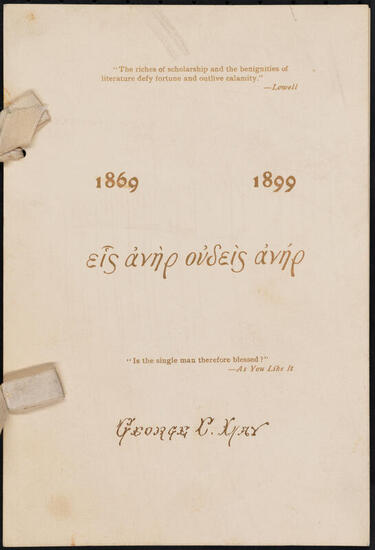 "The riches of scholarship and the benignities of
literature defy fortune and outlive calamity."
—Lowell
1869 1899
εἷς ἀνὴρ οὐδεὶς ἀνήρ
"Is the single man therefore blessed?"
—As You Like It
George C. May